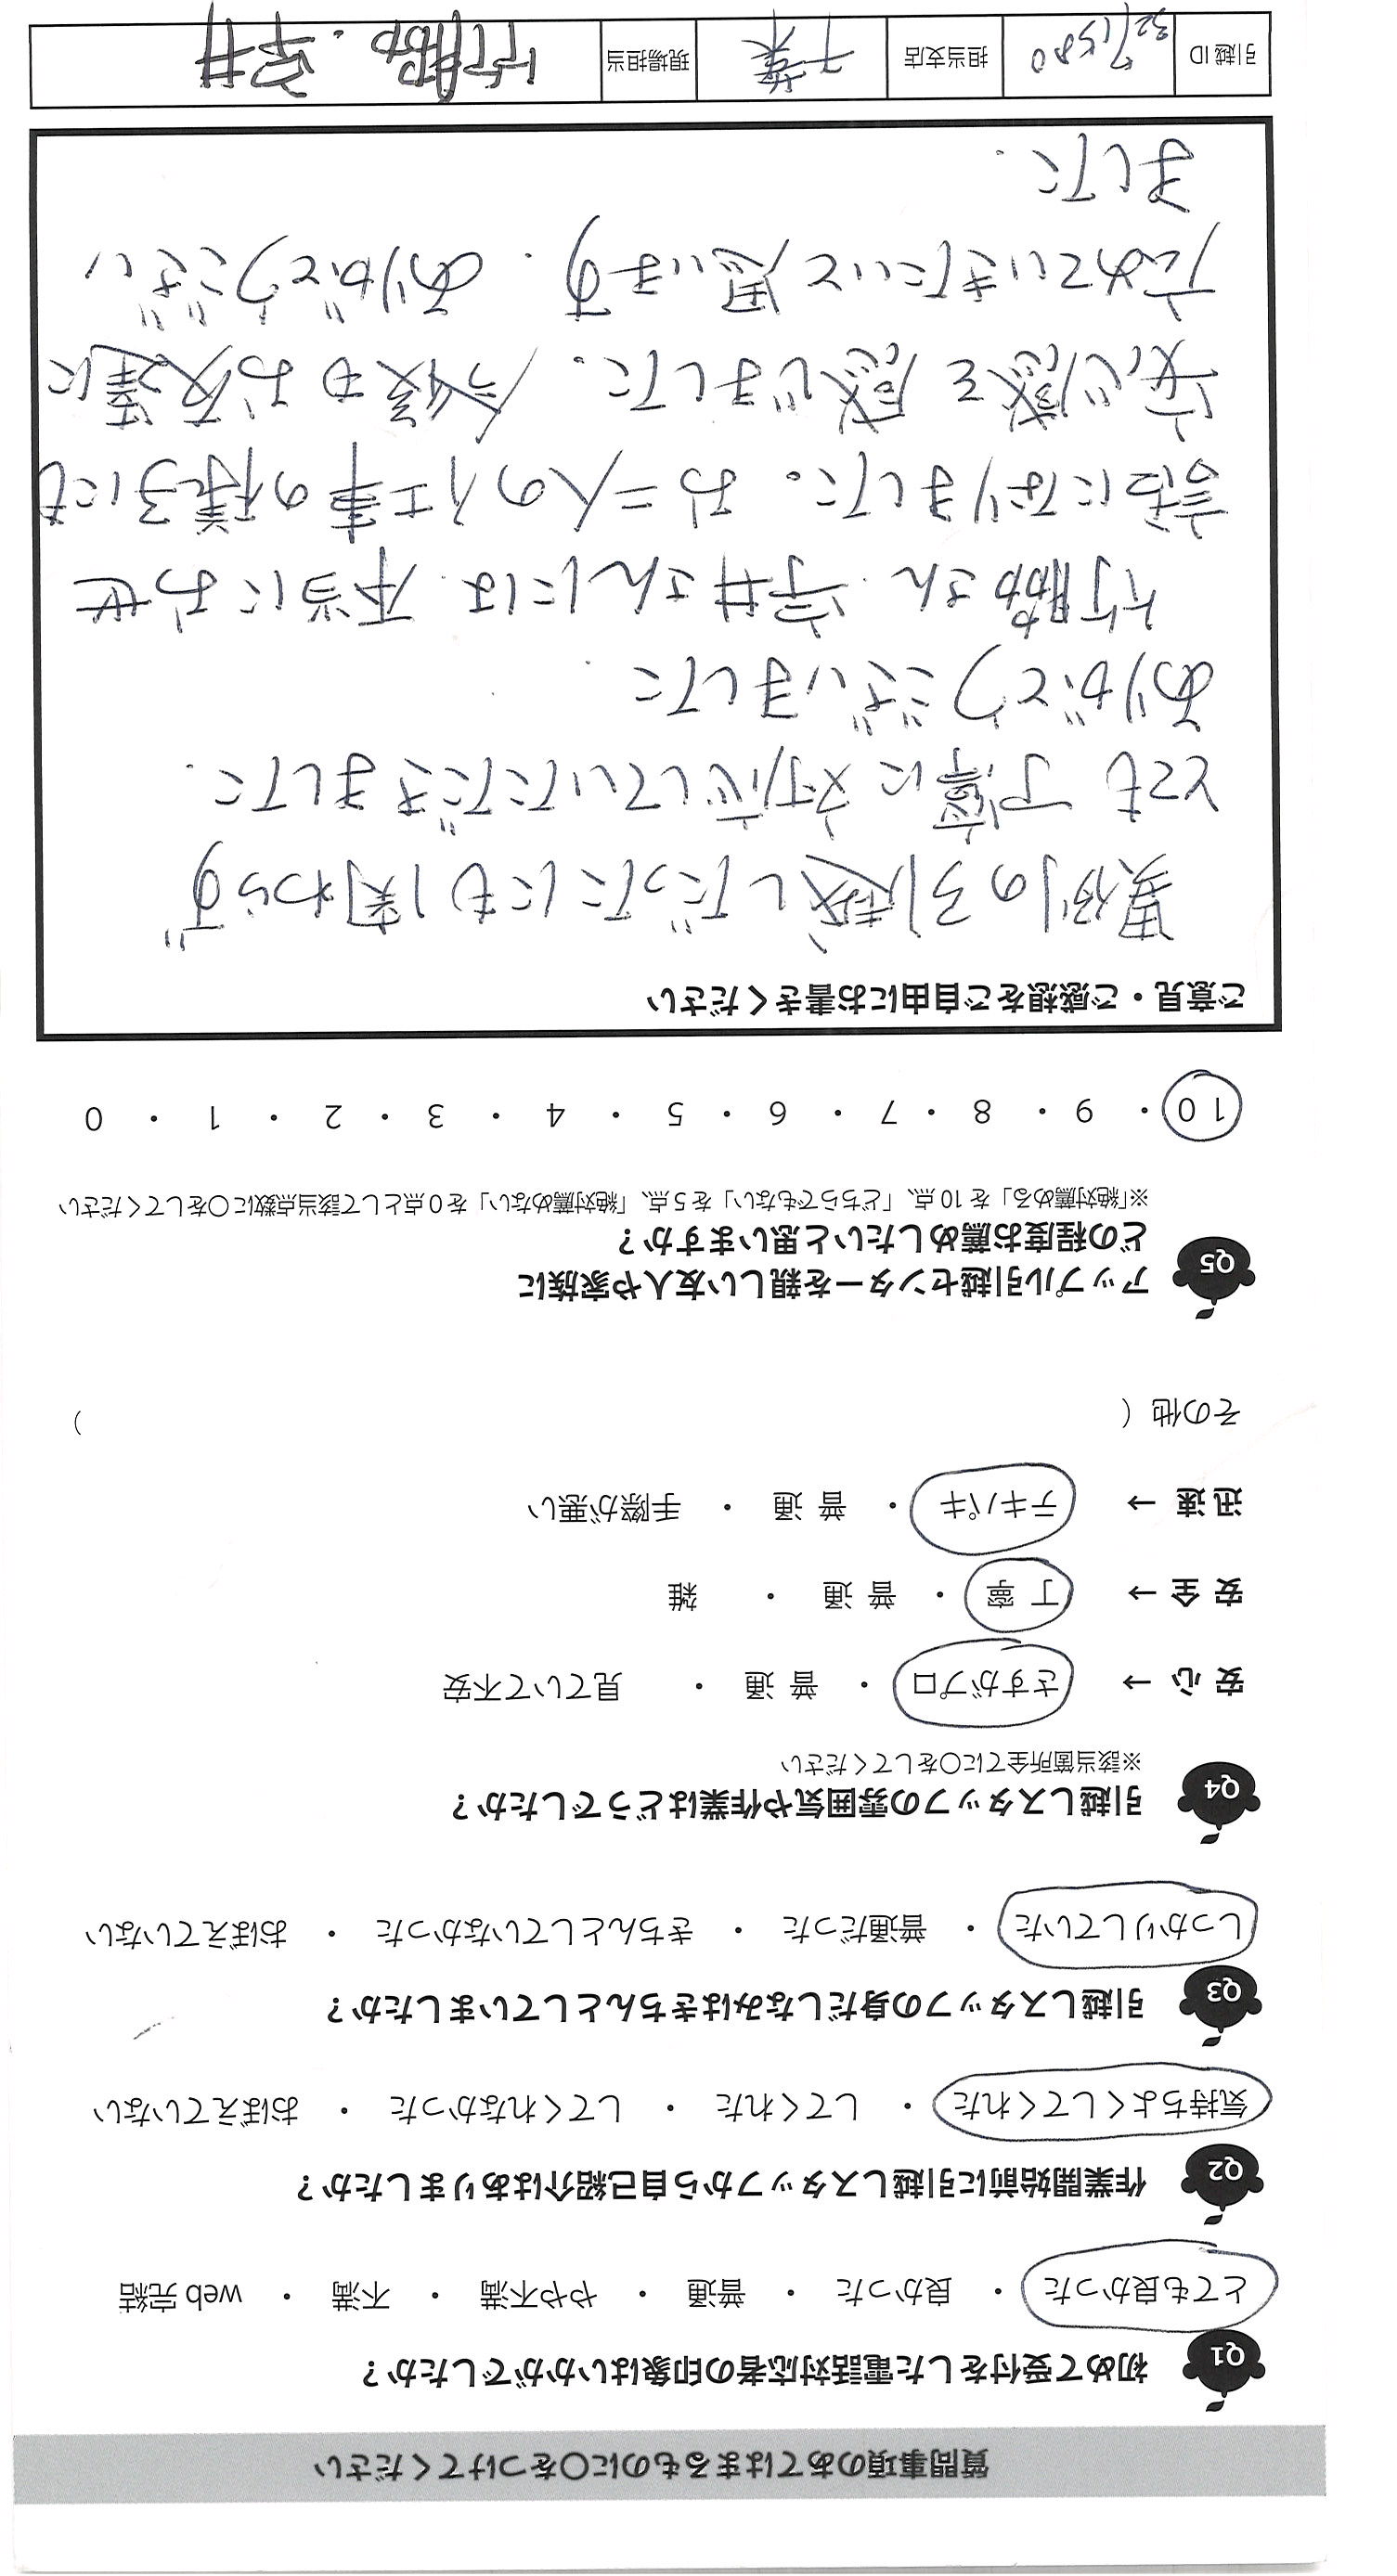 質問事項のあてはまるものに○をつけてください
Q1 初めて受付をした電話対応者の印象はいかがでしたか？
とても良かった ・ 良かった ・ 普通 ・ やや不満 ・ 不満 ・ web 完結
Q2 作業開始前に引越しスタッフから自己紹介はありましたか？
気持ちよくしてくれた ・ してくれた ・ してくれなかった ・ おぼえていない
Q3 引越しスタッフの身だしなみはきちんとしていましたか？
しっかりしていた ・ 普通だった ・ きちんとしていなかった ・ おぼえていない
Q4 引越しスタッフの雰囲気や作業はどうでしたか？
※該当箇所全てに○をしてください
安心 → さすがプロ ・ 普通 ・ 見ていて不安
安全 → 丁寧 ・ 普通 ・ 雑
迅速 → テキパキ ・ 普通 ・ 手際が悪い
その他（ ）
Q5 アップル引越センターを親しい友人や家族に
どの程度お薦めしたいと思いますか？
※「絶対薦める」を 10 点、「どちらでもない」を 5 点、「絶対薦めない」を 0 点として該当点数に○をしてください
10 ・ 9 ・ 8 ・ 7 ・ 6 ・ 5 ・ 4 ・ 3 ・ 2 ・ 1 ・ 0
ご意見・ご感想をご自由にお書きください
異例の引越しだったにも関わらず
とても丁寧に対応していただきました.
ありがとうございました.
竹脇さん.宇井さんには.本当におせ
話になりました。お二人の仕事の様子にも
安心感を感じました.今後もお友達に
広めていきたいと思います.ありがとうござい
ました.
引越 ID 担当支店 千葉 現場担当 竹脇.宇井